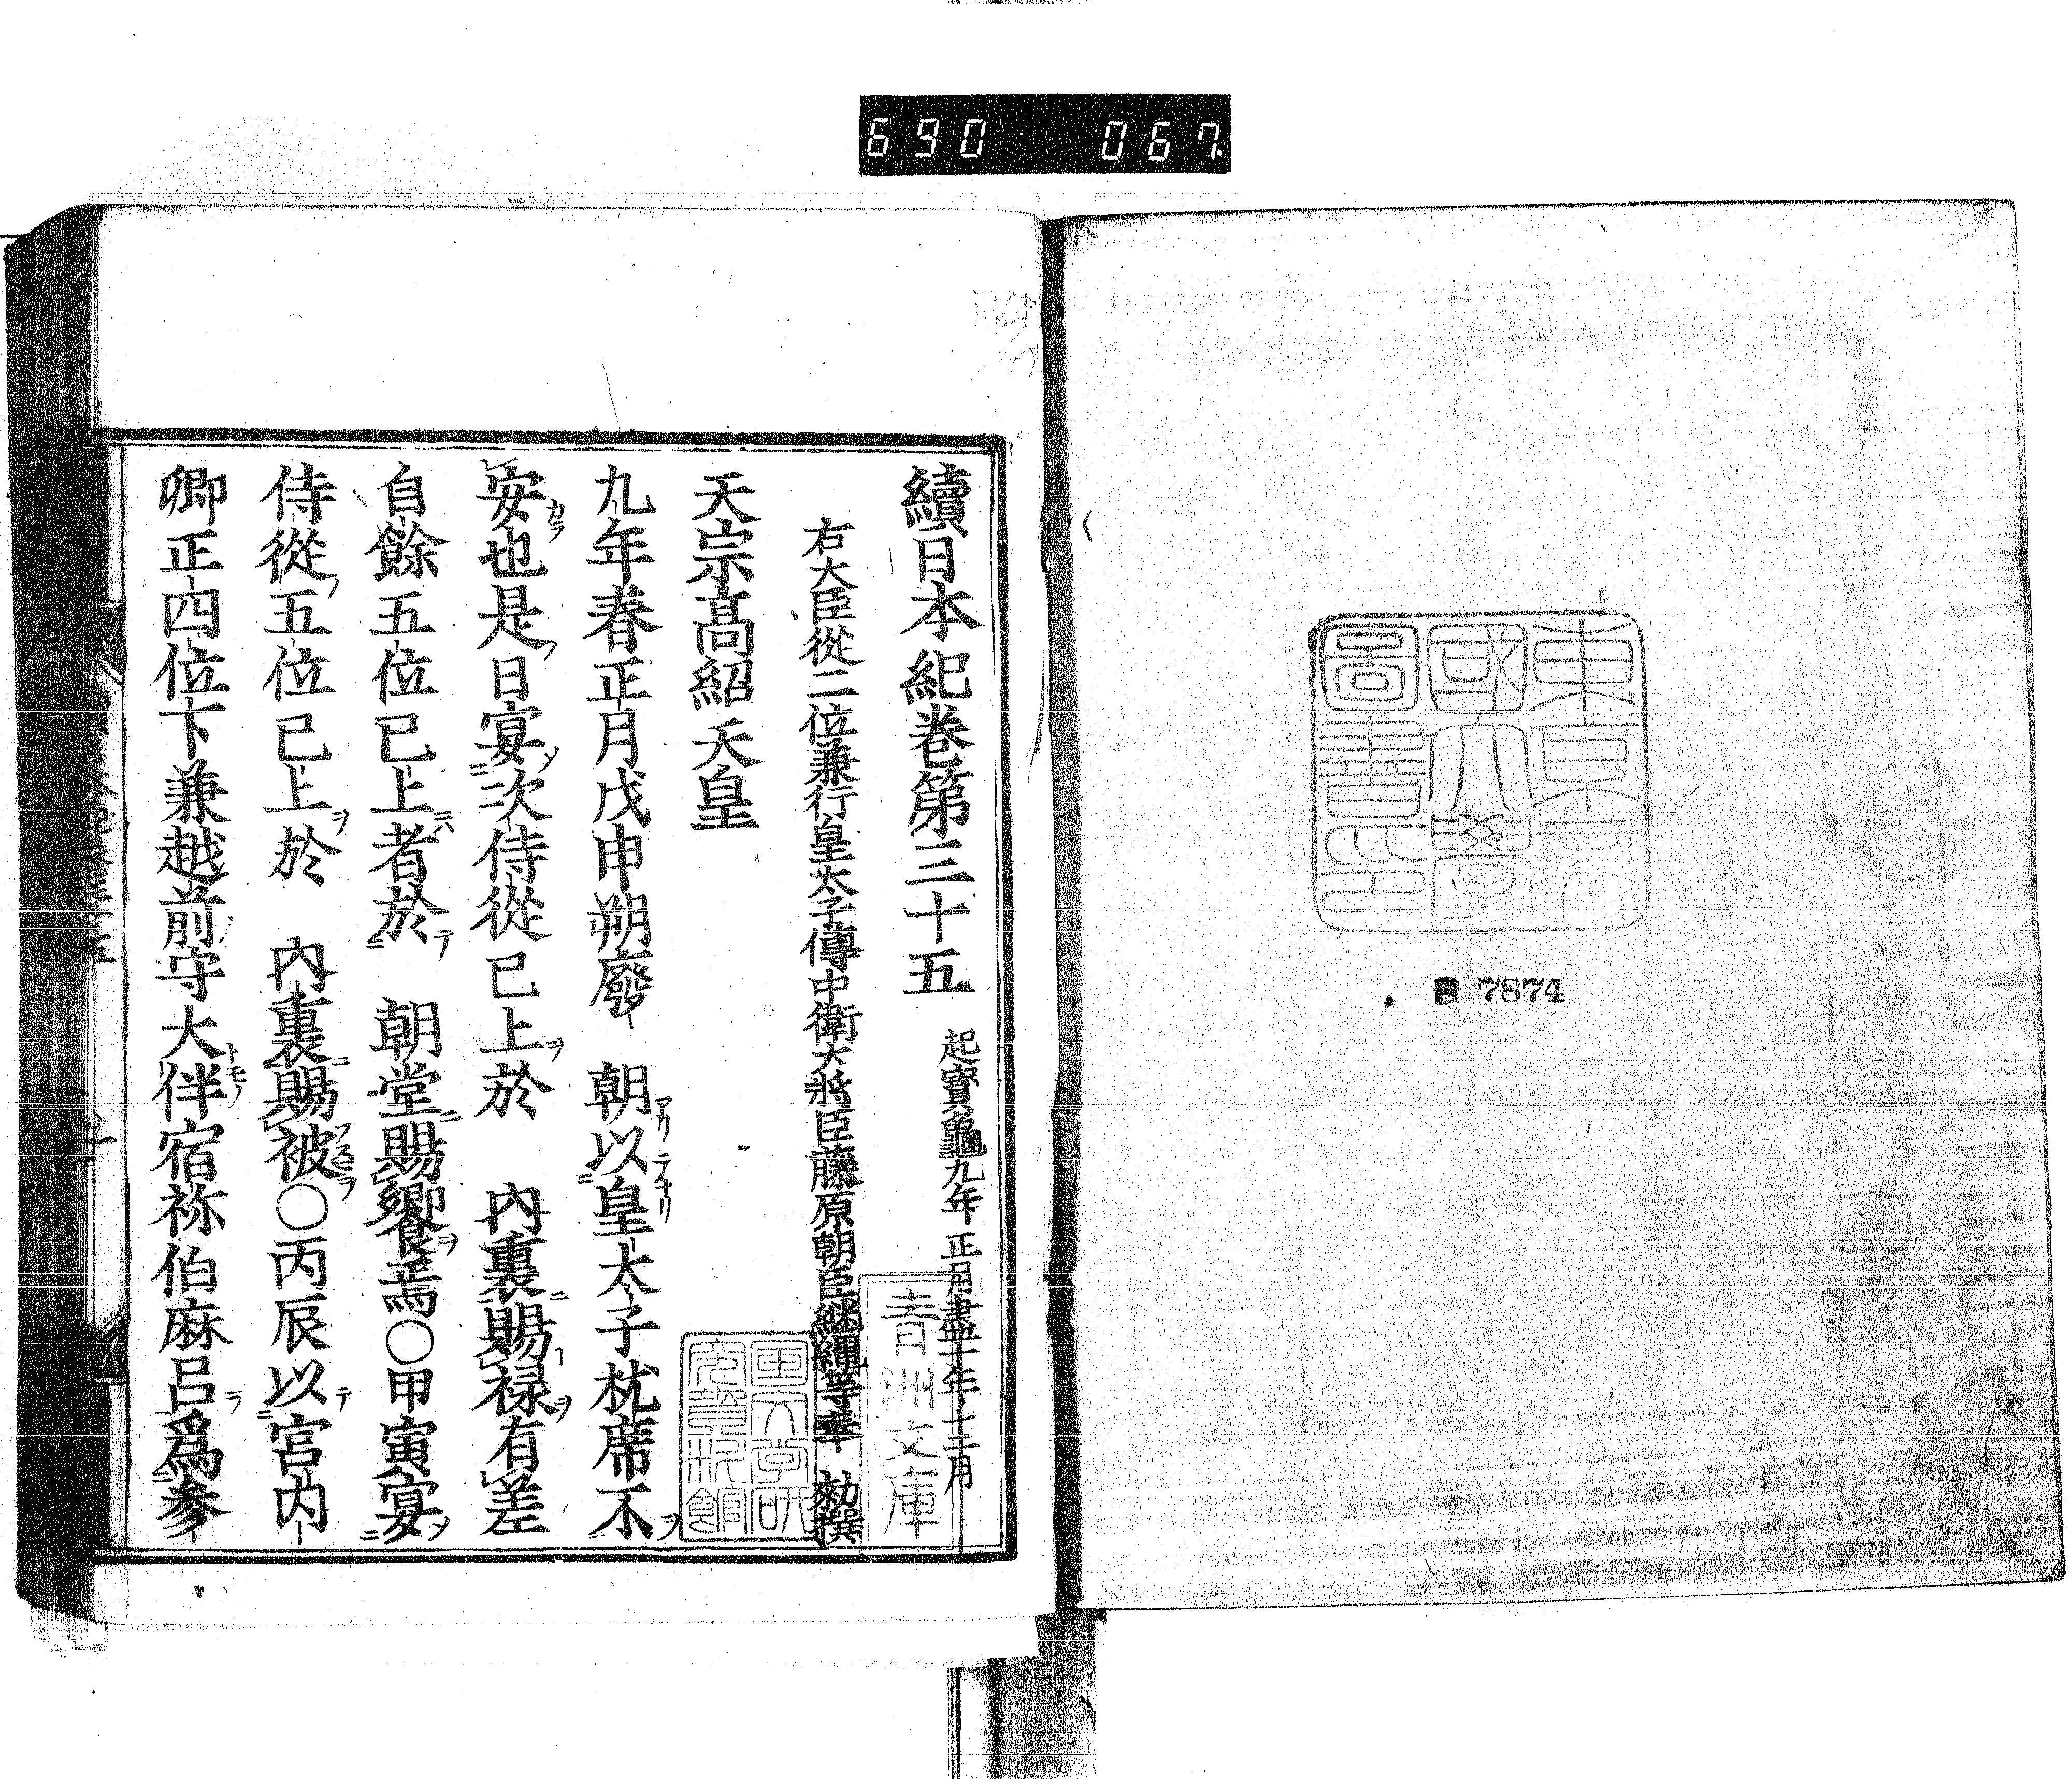 690 067
東京帝
國大學
圖書印
7874
續日本紀巻第三十五 起寳龜九年正月盡十年十二月
右大臣從二位兼行皇太子傅中衛大將臣藤原朝臣継縄等奉 勅撰
天宗髙紹天皇
九年春正月戊申朔廢 朝以皇太子枕席不
安也是日宴次侍從已上於 內裏賜禄有差
自餘五位已上者於 朝堂賜饗焉○甲寅宴
侍從五位已上於 內裏賜被○丙辰以宮内
卿正四位下兼越前守大伴宿祢伯麻呂爲参
青洲文庫